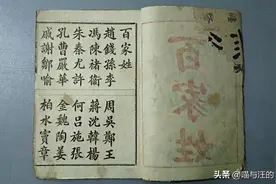 百家姓
趙錢孫李 周吳鄭王
馮陳褚衛 蔣沈韓楊
朱秦尤許 何呂施張
孔曹嚴華 金魏陶姜
戚謝鄒喻 柏水竇章
百家姓
头条 @喵与汪的